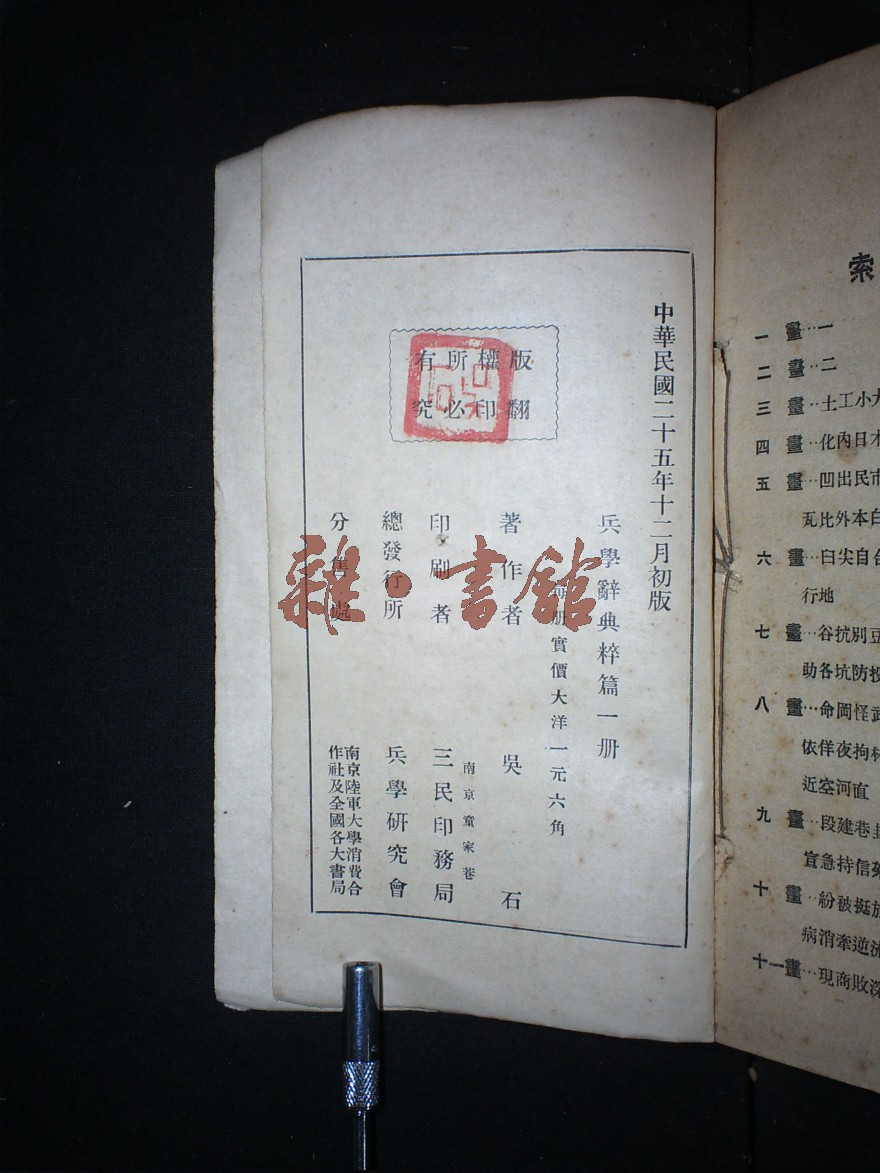 中華民國二十五年十二月初版
兵學辭典粹篇一册
每册實價大洋一元六角
著作者 吳石
南京童家巷
印刷者 三民印務局
總發行所 兵學研究會
分售處 南京陸軍大學消費合
作社及全國各大書局
版權所有
翻印必究
雜·書館
索
一畫…一
二畫…二
三畫…土工小大
四畫…化內日本
五畫…凹出民市
瓦比外本白
六畫…曰尖自合
行地
七畫…谷抗別豆
助各坑防投
八畫…命岡怪武
依佯夜拘林
近空河直
九畫…段建巷封
宣急持信
十畫…紛被挺旅
病消牽逆流
十一畫…現商敗深